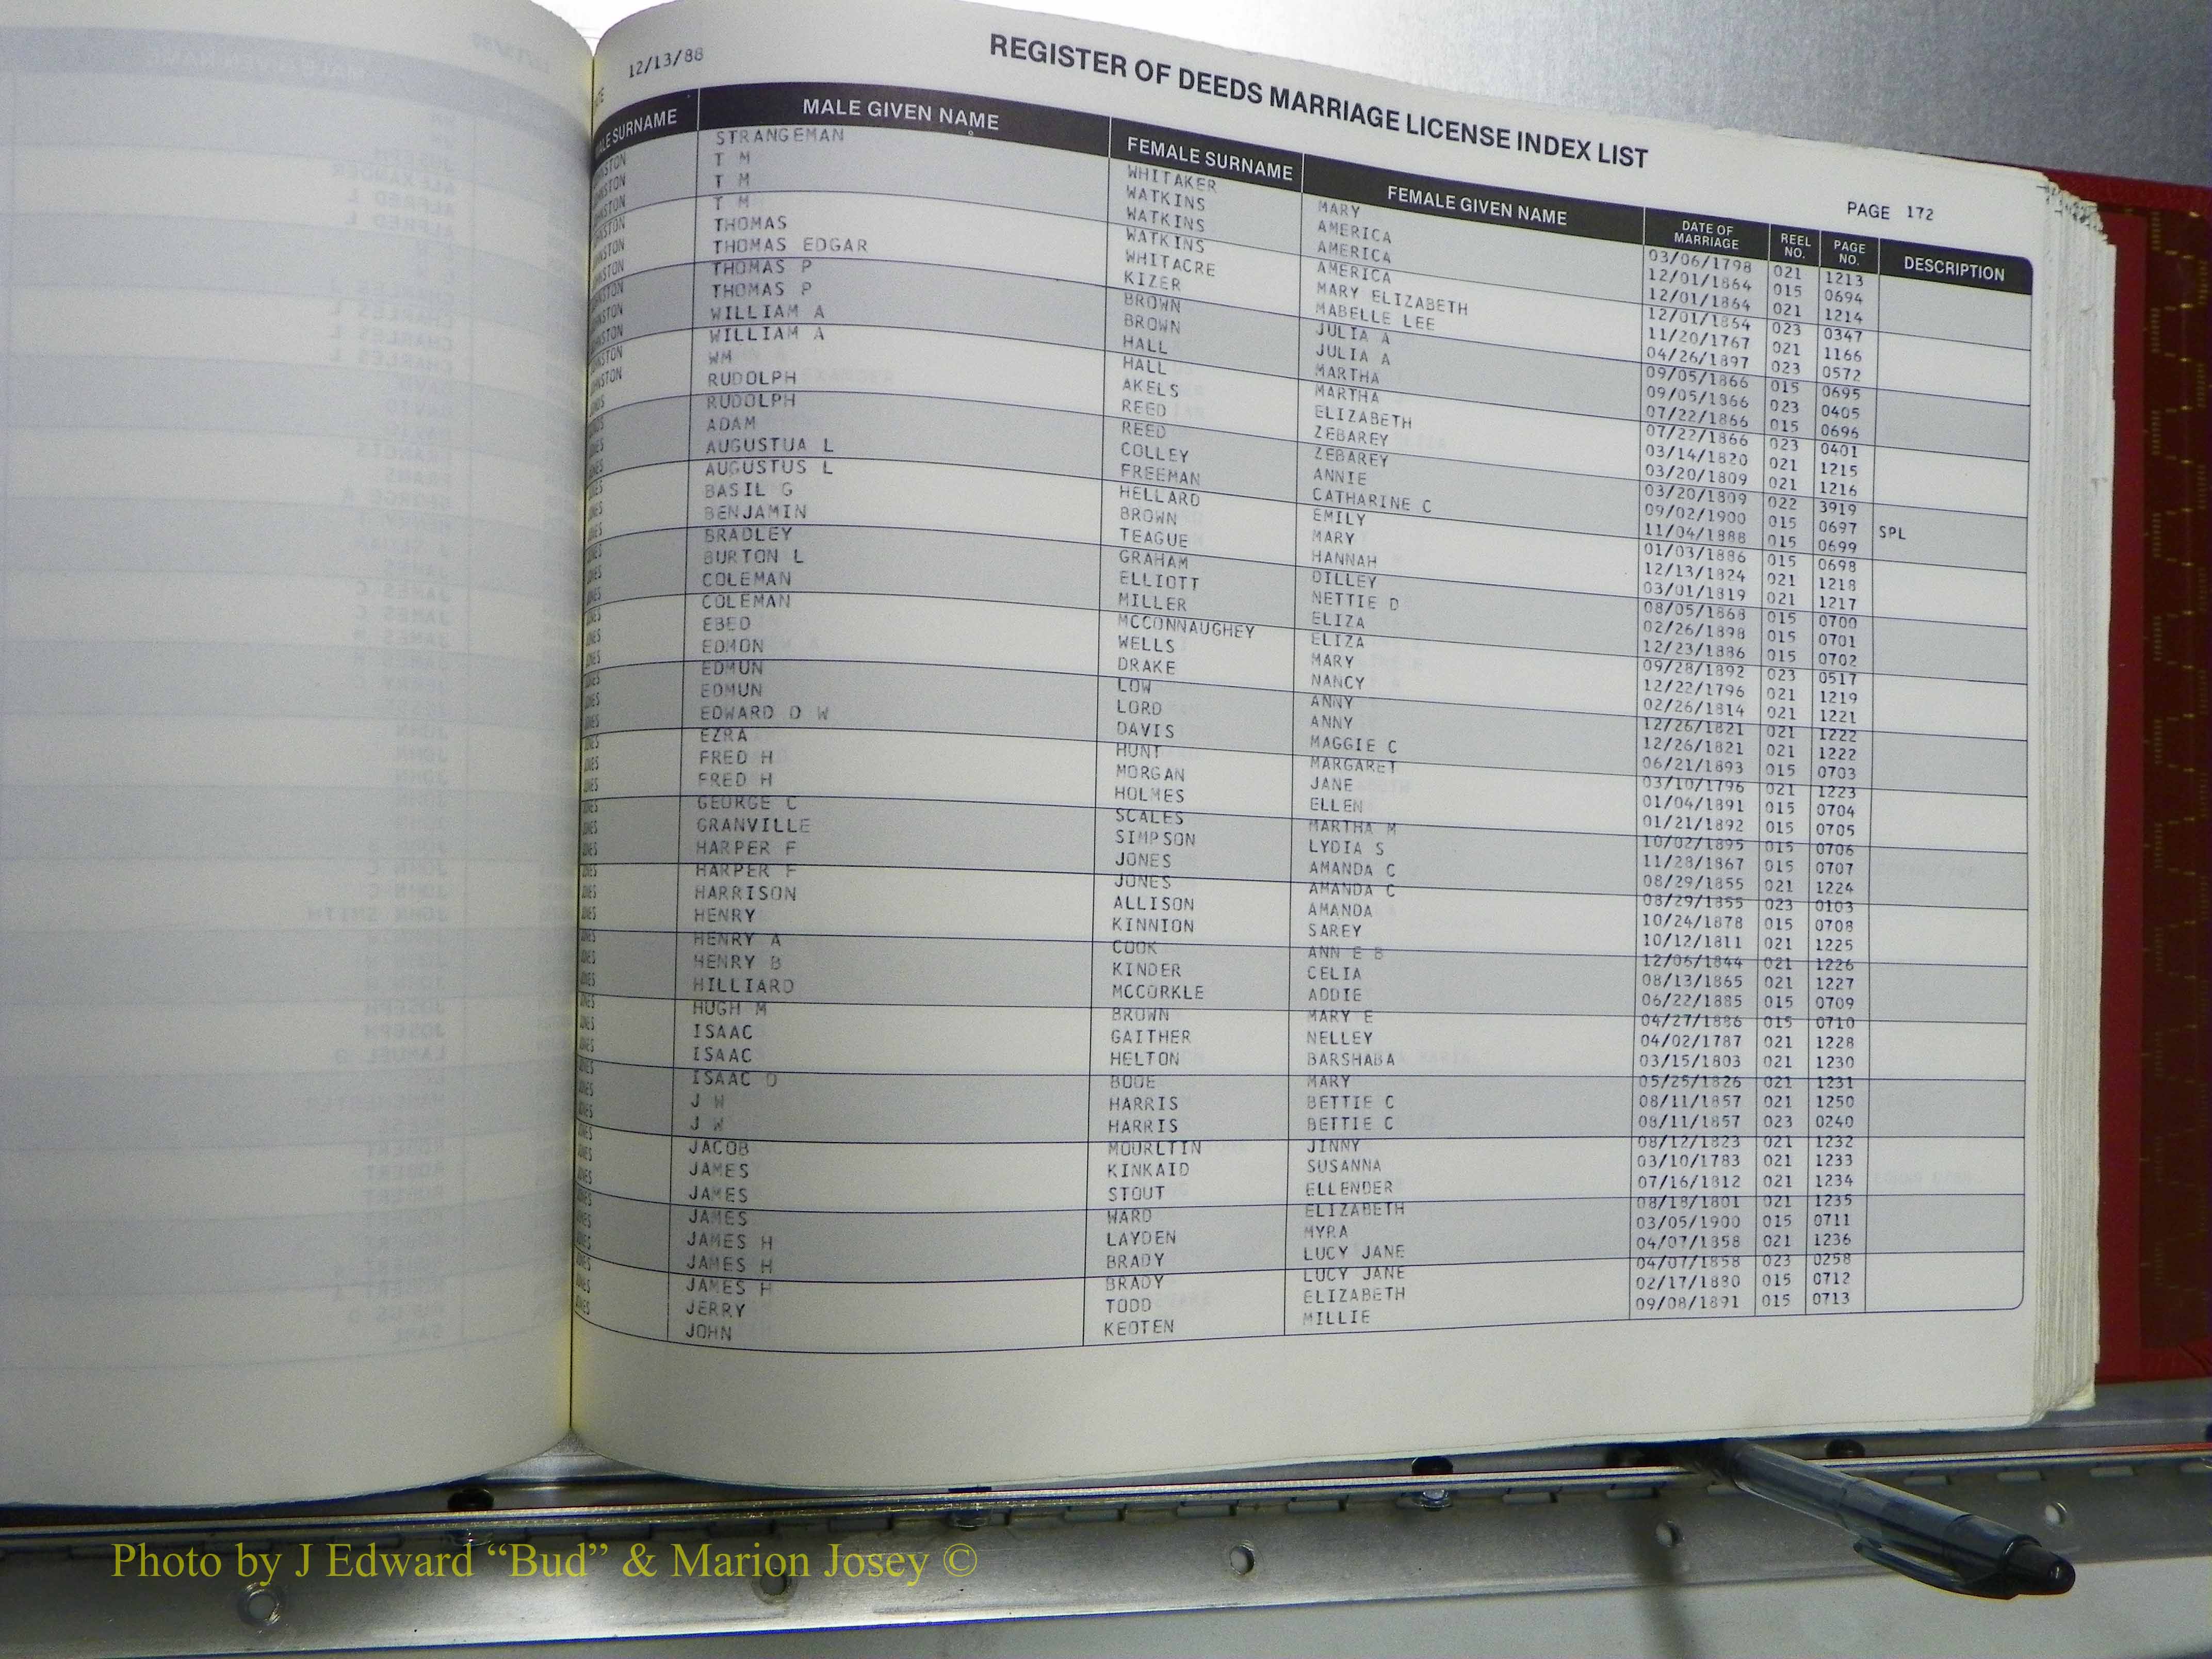 12/13/88
REGISTER OF DEEDS MARRIAGE LICENSE INDEX LIST
PAGE 172
SURNAME MALE GIVEN NAME FEMALE SURNAME FEMALE GIVEN NAME DATE OF MARRIAGE REEL NO. PAGE NO. DESCRIPTION
STRANGEMAN WHITAKER MARY 03/06/1798 021 1213
T M WATKINS AMERICA 12/01/1864 015 0694
T M WATKINS AMERICA 12/01/1864 021 1214
T M WATKINS AMERICA 12/01/1864 023 0347
THOMAS WHITACRE MARY ELIZABETH 11/20/1767 021 1166
THOMAS EDGAR KIZER MABELLE LEE 04/26/1897 023 0572
THOMAS P BROWN JULIA A 09/05/1866 015 0695
THOMAS P BROWN JULIA A 09/05/1866 023 0405
WILLIAM A HALL MARTHA 07/22/1866 015 0696
WILLIAM A HALL MARTHA 07/22/1866 023 0401
WM AKELS ELIZABETH 03/14/1820 021 1215
RUDOLPH REED ZEBAREY 03/20/1809 021 1216
RUDOLPH REED ZEBAREY 03/20/1809 022 3919
ADAM COLLEY ANNIE 09/02/1900 015 0697 SPL
AUGUSTUA L FREEMAN CATHARINE C 11/04/1888 015 0699
AUGUSTUS L HELLARD EMILY 01/03/1886 015 0698
BASIL G BROWN MARY 12/13/1824 021 1218
BENJAMIN TEAGUE HANNAH 03/01/1819 021 1217
BRADLEY GRAHAM DILLEY 08/05/1868 015 0700
BURTON L ELLIOTT NETTIE D 02/26/1898 015 0701
COLEMAN MILLER ELIZA 12/23/1886 015 0702
COLEMAN MCCONNAUGHEY ELIZA 09/28/1892 023 0517
EBED WELLS MARY 12/22/1796 021 1219
EDMON DRAKE NANCY 02/26/1814 021 1221
EDMUN LOW ANNY 12/26/1821 021 1222
EDMUN LORD ANNY 12/26/1821 021 1222
EDWARD D W DAVIS MAGGIE C 06/21/1893 015 0703
EZRA HUNT MARGARET 03/10/1796 021 1223
FRED H MORGAN JANE 01/04/1891 015 0704
FRED H HOLMES ELLEN 01/21/1892 015 0705
GEORGE C SCALES MARTHA M 10/02/1895 015 0706
GRANVILLE SIMPSON LYDIA S 11/28/1867 015 0707
HARPER F JONES AMANDA C 08/29/1855 021 1224
HARPER F JONES AMANDA C 08/29/1855 023 0103
HARRISON ALLISON AMANDA 10/24/1878 015 0708
HENRY KINNION SAREY 10/12/1811 021 1225
HENRY A COOK ANN E B 12/06/1844 021 1226
HENRY B KINDER CELIA 08/13/1865 021 1227
HILLIARD MCCORKLE ADDIE 06/22/1885 015 0709
HUGH M BROWN MARY E 04/27/1886 015 0710
ISAAC GAITHER NELLEY 04/02/1787 021 1228
ISAAC HELTON BARSHABA 03/15/1803 021 1230
ISAAC D BODE MARY 05/25/1826 021 1231
J W HARRIS BETTIE C 08/11/1857 021 1250
J W HARRIS BETTIE C 08/11/1857 023 0240
JACOB MOURLTIN JINNY 08/12/1823 021 1232
JAMES KINKAID SUSANNA 03/10/1783 021 1233
JAMES STOUT ELLENDER 07/16/1812 021 1234
JAMES WARD ELIZABETH 08/18/1801 021 1235
JAMES H LAYDEN MYRA 03/05/1900 015 0711
JAMES H BRADY LUCY JANE 04/07/1858 021 1236
JAMES H BRADY LUCY JANE 04/07/1858 023 0258
JERRY TODD ELIZABETH 02/17/1880 015 0712
JOHN KEOTEN MILLIE 09/08/1891 015 0713
Photo by J Edward “Bud” & Marion Josey ©